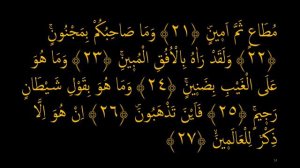 مُطَاعٍ ثَمَّ اَمٖينٍۜ ﴿٢١﴾ وَمَا صَاحِبُكُمْ بِمَجْنُونٍۚ
﴿٢٢﴾ وَلَقَدْ رَاٰهُ بِالْاُفُقِ الْمُبٖينِۚ ﴿٢٣﴾ وَمَا هُوَ
عَلَى الْغَيْبِ بِضَنٖينٍۚ ﴿٢٤﴾ وَمَا هُوَ بِقَوْلِ شَيْطَانٍ
رَجٖيمٍۙ ﴿٢٥﴾ فَاَيْنَ تَذْهَبُونَۜ ﴿٢٦﴾ اِنْ هُوَ اِلَّا
ذِكْرٌ لِلْعَالَمٖينَۙ ﴿٢٧﴾